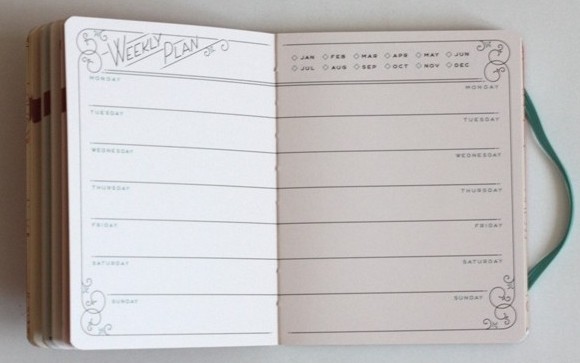 WEEKLY PLAN
MONDAY
TUESDAY
WEDNESDAY
THURSDAY
FRIDAY
SATURDAY
SUNDAY
JAN FEB MAR APR MAY JUN
JUL AUG SEP OCT NOV DEC
MONDAY
TUESDAY
WEDNESDAY
THURSDAY
FRIDAY
SATURDAY
SUNDAY